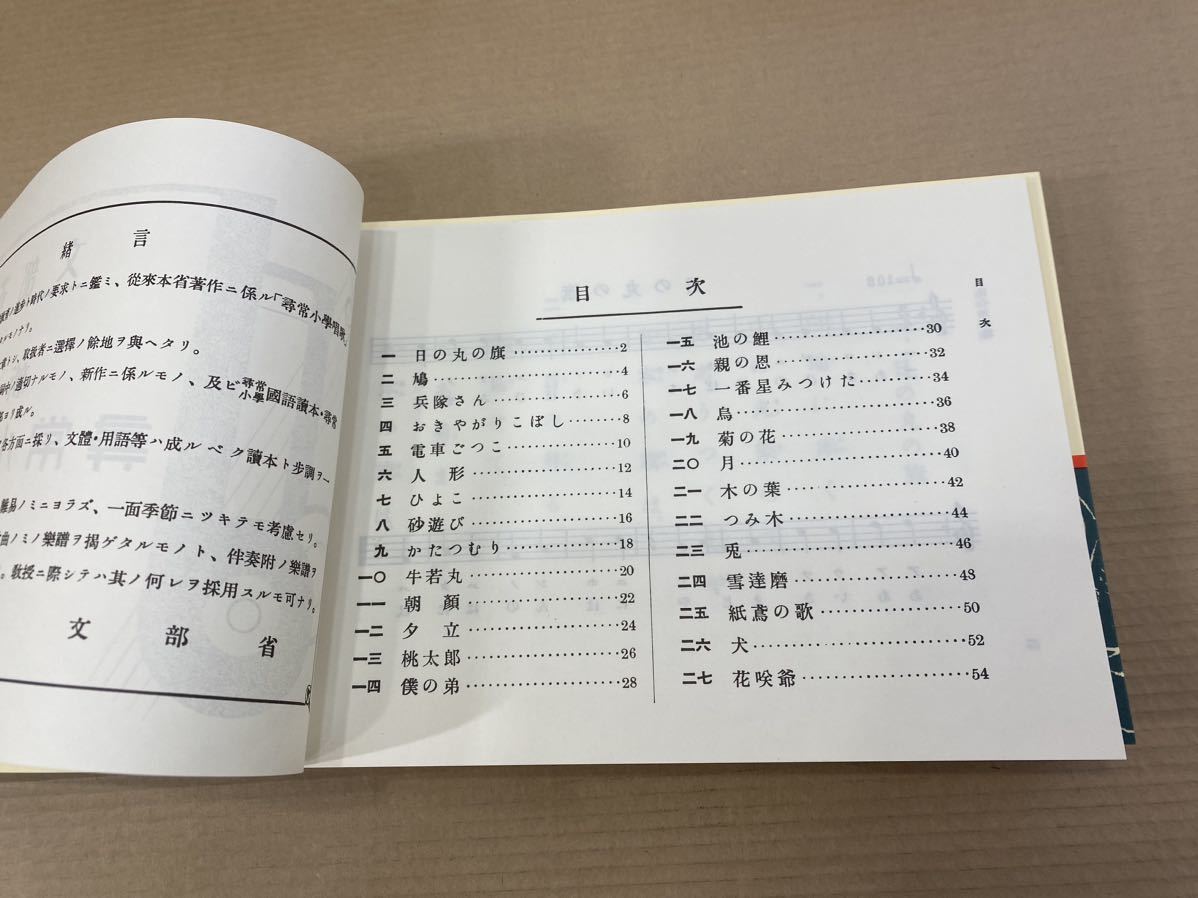 緒言
ノ進歩ト時代ノ要求トニ鑑ミ、從來本省著作ニ係ル「尋常小學唱歌」
ルモノナリ。
トシ、取扱者ニ選擇ノ餘地ヲ與ヘタリ。
中ノ適切ナルモノ、新作ニ係ルモノ、及ビ尋常小學國語讀本・尋常
ヨリ成ル。
各方面ニ採リ、文體・用語等ハ成ルベク讀本ト步調ヲ一
難易ノミニヨラズ、一面季節ニツキテモ考慮セリ。
曲ノミノ樂譜ヲ揭ゲタルモノト、伴奏附ノ樂譜ヲ
。敎授ニ際シテハ其ノ何レヲ採用スルモ可ナリ。
文部省
目次
一 日の丸の旗 2
二 鳩 4
三 兵隊さん 6
四 おきやがりこぼし 8
五 電車ごつこ 10
六 人形 12
七 ひよこ 14
八 砂遊び 16
九 かたつむり 18
一〇 牛若丸 20
一一 朝顏 22
一二 夕立 24
一三 桃太郎 26
一四 僕の弟 28
一五 池の鯉 30
一六 親の恩 32
一七 一番星みつけた 34
一八 烏 36
一九 菊の花 38
二〇 月 40
二一 木の葉 42
二二 つみ木 44
二三 兎 46
二四 雪達磨 48
二五 紙鳶の歌 50
二六 犬 52
二七 花咲爺 54
目次